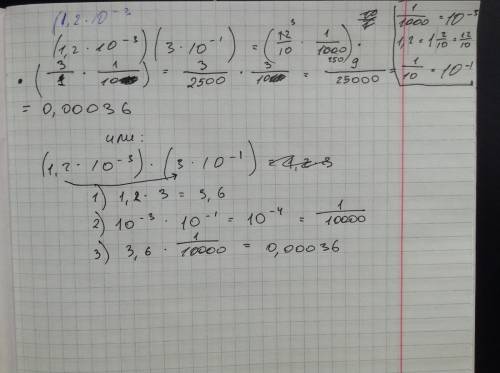 (1,2 · 10⁻³
(1,2 · 10⁻³)(3 · 10⁻¹) = (12/10 · 1/1000) ·
· (3/1 · 1/10) = 3/2500 · 3/10 = 9/25000 =
= 0,00036
1/1000 = 10⁻³
1,2 = 1 2/10 = 12/10
1/10 = 10⁻¹
или:
(1,2 · 10⁻³) · (3 · 10⁻¹)
1) 1,2 · 3 = 3,6
2) 10⁻³ · 10⁻¹ = 10⁻⁴ = 1/10000
3) 3,6 · 1/10000 = 0,00036